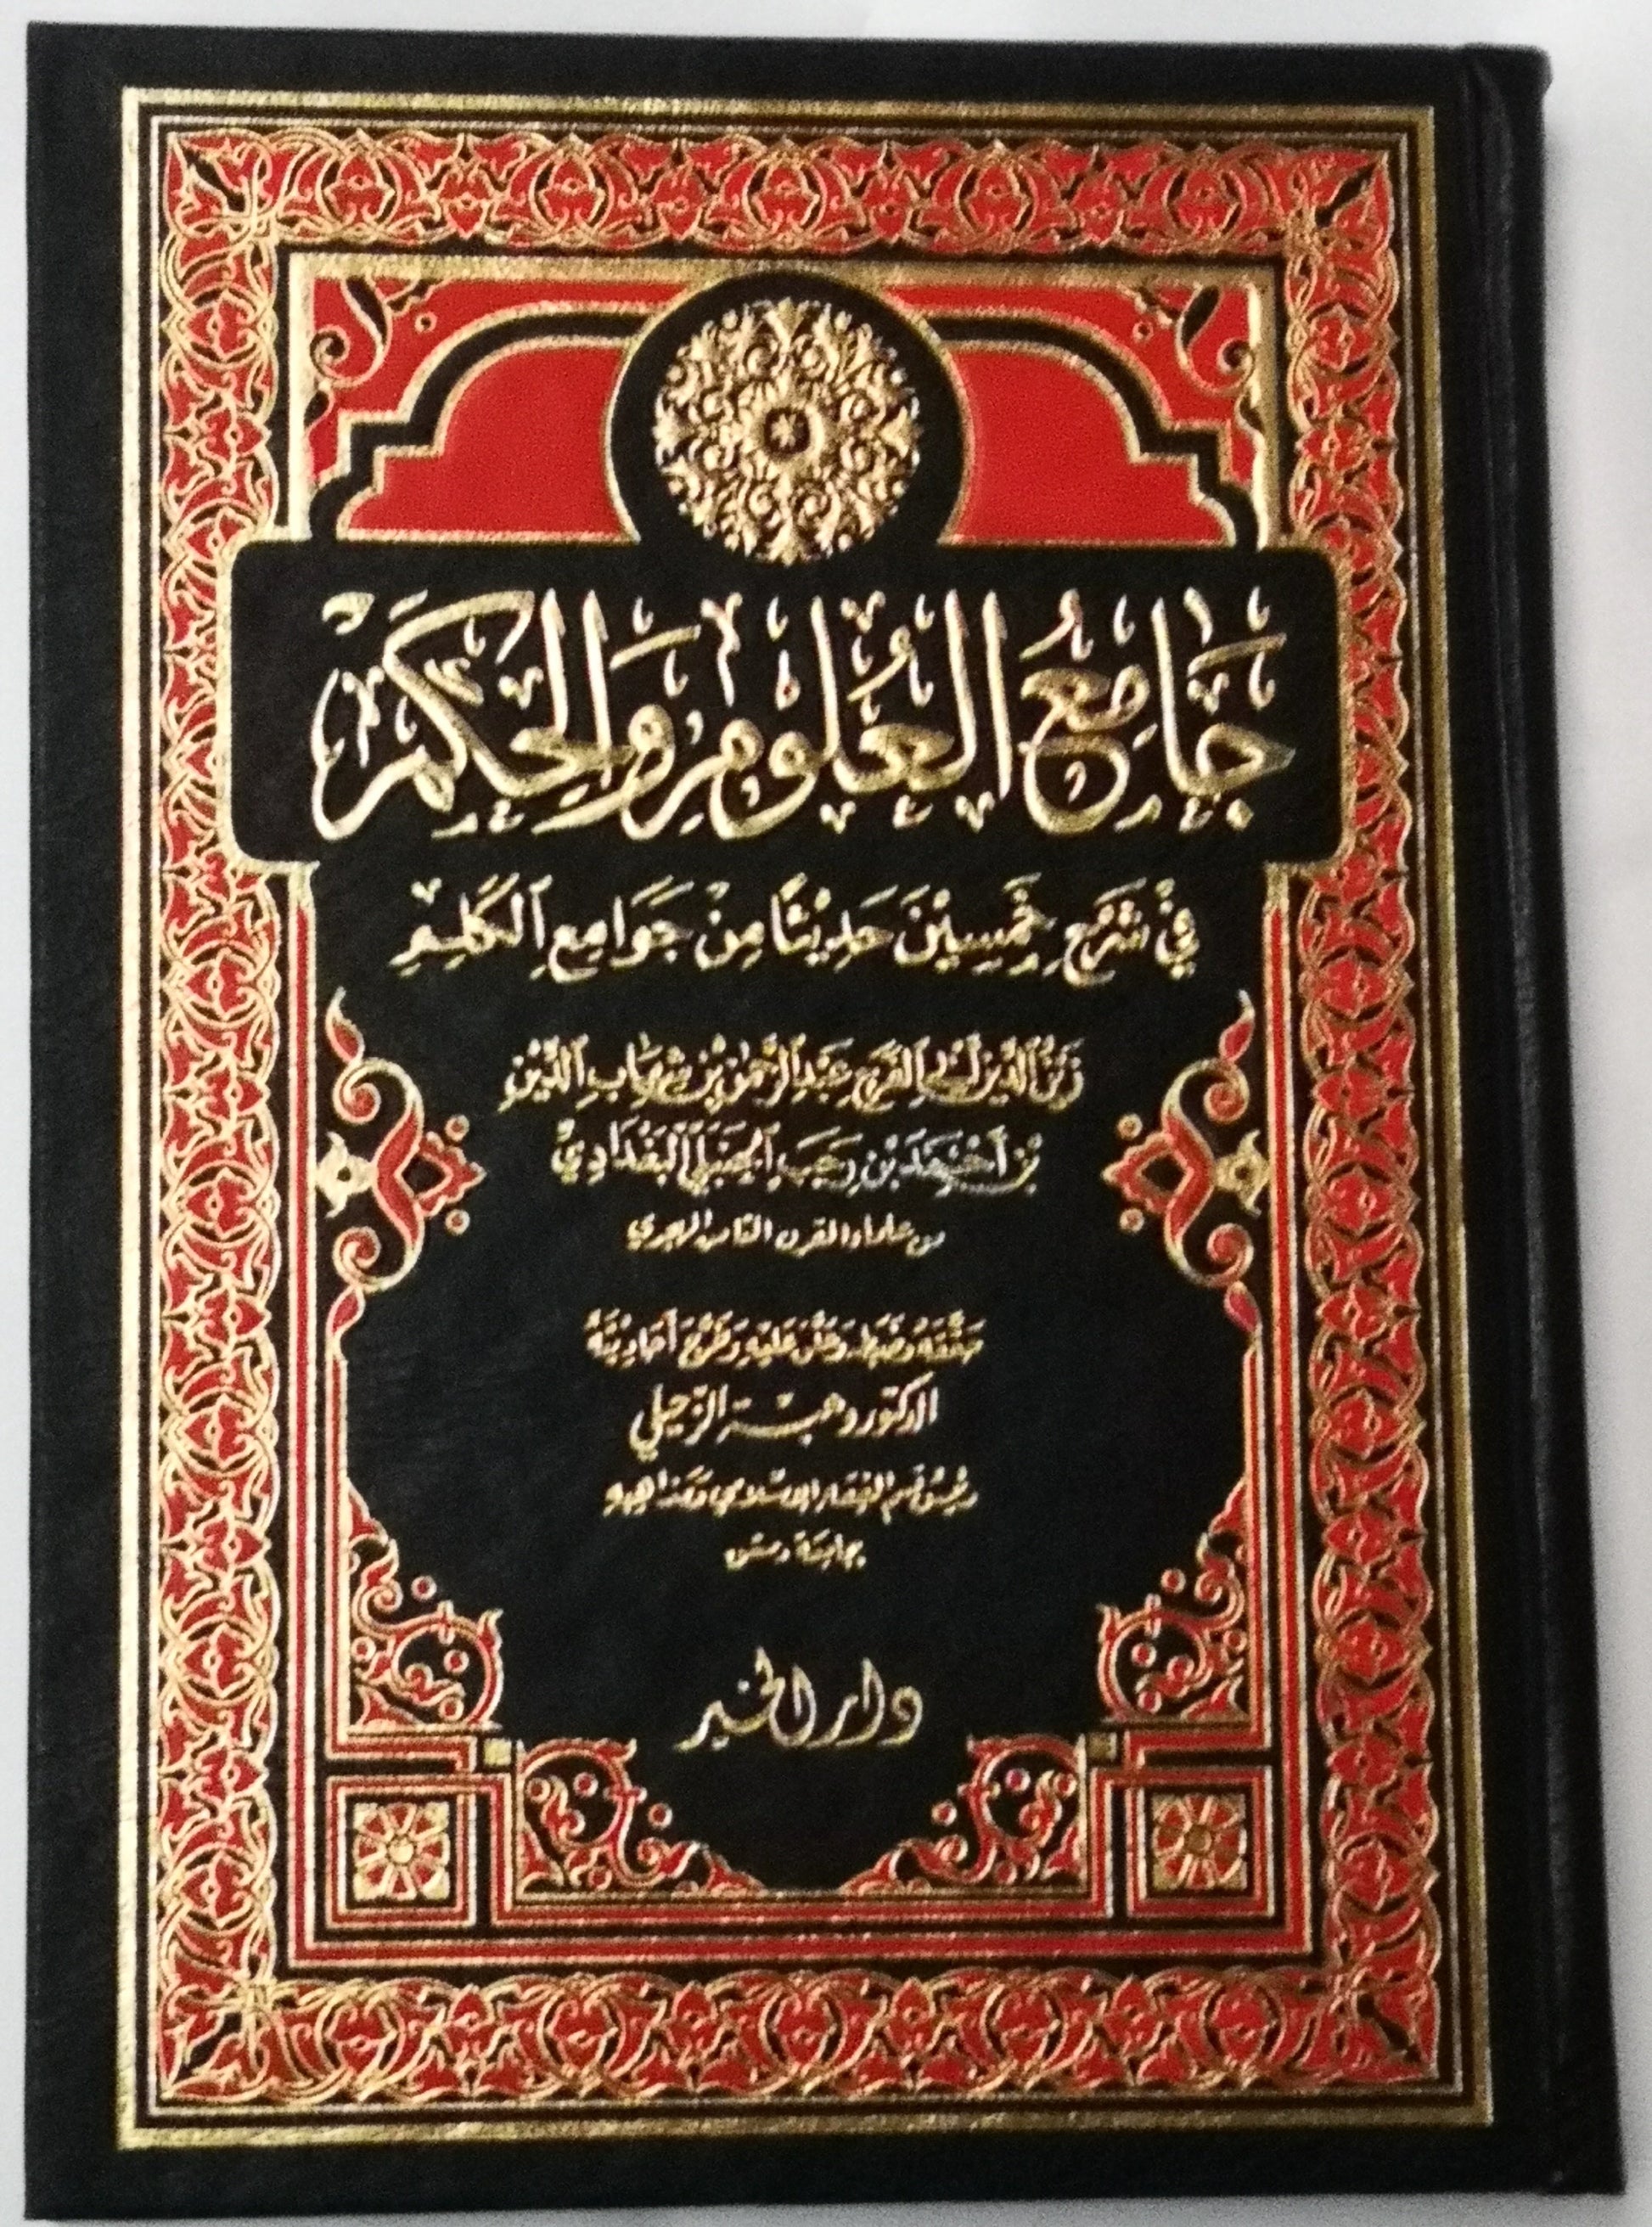 جَامِعُ العُلُومِ وَالحِكَمِ
فِي شَرْحِ خَمْسِينَ حَدِيثًا مِنْ جَوَامِعِ الكَلِمِ
زَيْنِ الدِّينِ أَبِي الفَرَجِ عَبْدِ الرَّحْمٰنِ بْنِ شِهَابِ الدِّينِ
بْنِ أَحْمَدَ بْنِ رَجَبٍ الحَنْبَلِيِّ البَغْدَادِيِّ
من علماء القرن الثامن الهجري
حَقَّقَهُ وَضَبَطَهُ وَعَلَّقَ عَلَيْهِ وَخَرَّجَ أَحَادِيثَهُ
الدكتور وهبة الزحيلي
رئيس قسم الفقه الإسلامي ومذاهبه
بجامعة دمشق
دار الخير